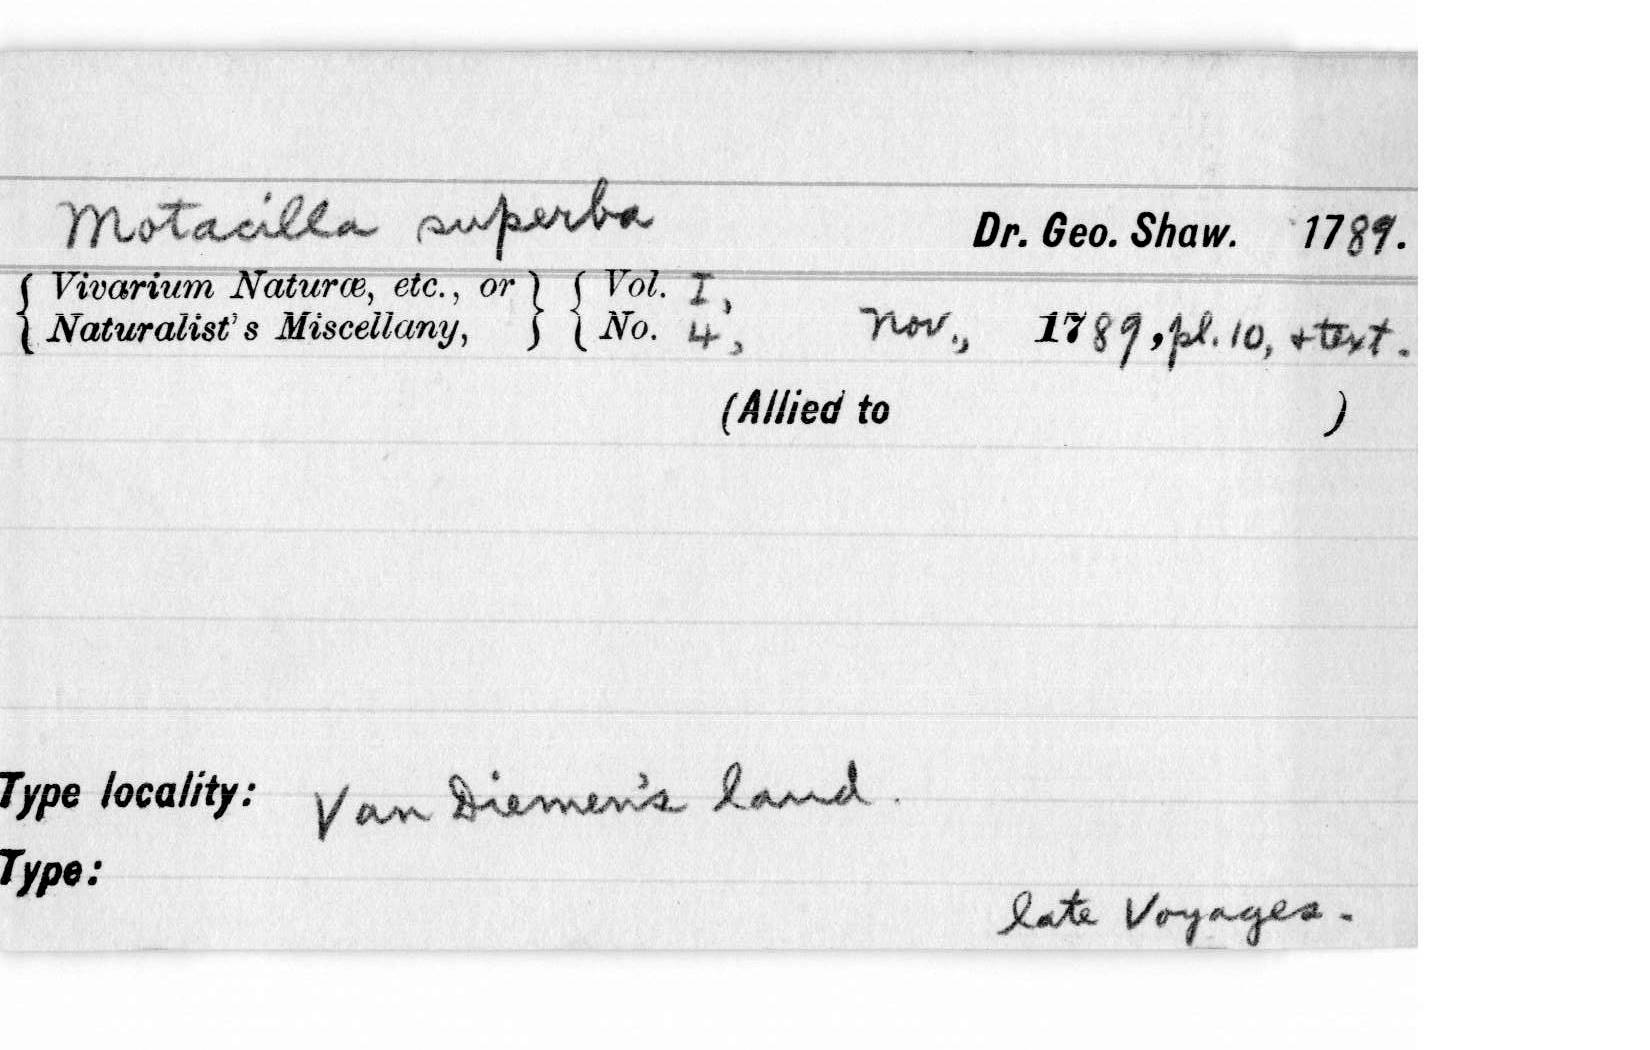 Motacilla superba Dr. Geo. Shaw. 1789.
{ Vivarium Naturæ, etc., or } { Vol. I,
{ Naturalist's Miscellany, } { No. 4, Nov., 1789, pl. 10, + text.
(Allied to )
Type locality: Van Diemen's land.
Type:
late Voyages.